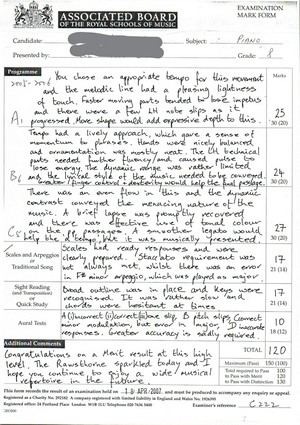 ASSOCIATED BOARD
OF THE ROYAL SCHOOLS OF MUSIC
EXAMINATION
MARK FORM
Candidate:
Subject: PIANO
Presented by:
Grade: 8
Programme
Marks
2005-2006
You chose an appropriate tempo for this movement
and the melodic line had a pleasing lightness
of touch. Faster moving parts tended to lose impetus
and there were a few LH note slips as it
progressed. More shape would add expressive depth to this.
A1
25
30 (20)
Tempo had a lively approach, which gave a sense of
momentum to phrases. Hands were nicely balanced
and ornamentation was mostly neat. The LH technical
parts needed further fluency and caused pulse to
lose energy. The dynamic range was rather limited
and the lyrical style of the music needed to be conveyed.
Greater finger control + dexterity would help the final passage.
B6
24
30 (20)
There was an even flow in this and the dynamic
contrasts conveyed the menacing nature of the
music. A brief lapse was promptly recovered
and there was effective use of tonal colour
on the passages. A smoother legato would
help the tempo, but it was musically presented.
C5
27
30 (20)
Scales and Arpeggios
or
Traditional Song
Scales had ready responses and were
clearly prepared. Staccato requirement was
not always met, whilst there was an error
in F# minor arpeggio, which was played as a major.
17
21 (14)
Sight Reading
and Transposition
or
Quick Study
Broad outline was in place and keys were
recognised. It was rather slow and
chords were hesitant at times.
17
21 (14)
Aural Tests
A(i) correct (ii) correct (iii) one slip, B pitch slips, C correct
minor modulation, but error in major, D inaccurate
responses. Greater accuracy is sadly required.
10
18 (12)
Additional Comments
TOTAL 120
Congratulations on a Merit result at this high
level. The Rawsthorne sparkled today and I
hope you continue to enjoy a wide musical
repertoire in the future.
Maximum (Pass) 150 (100)
Total required to Pass 100
to Pass with Merit 120
to Pass with Distinction 130
This form records the result of an examination held on 18 APR 2007 and must be produced to accompany any enquiry or appeal.
Registered as a Charity No. 292182 A company limited by guarantee and registered in England and Wales No. 1926395
Registered office: 24 Portland Place London W1B 1LU Telephone 020 7636 5400
Examiner's reference C222